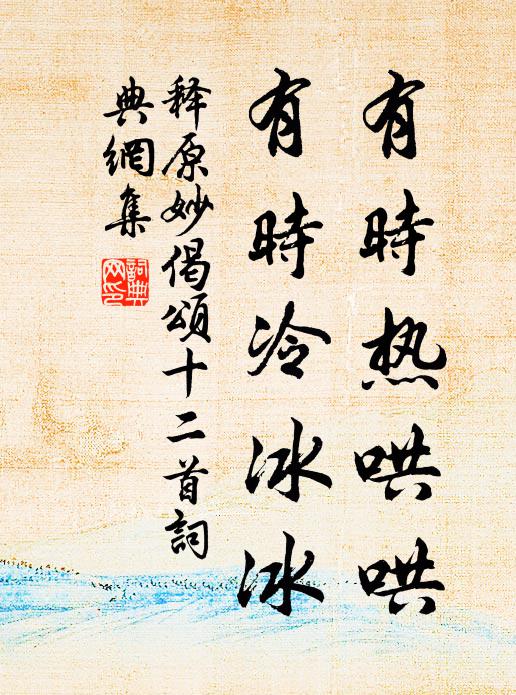 有時热哄哄
有時冷冰冰
释原妙偈頌十二首詞
典網集
詞典
网印